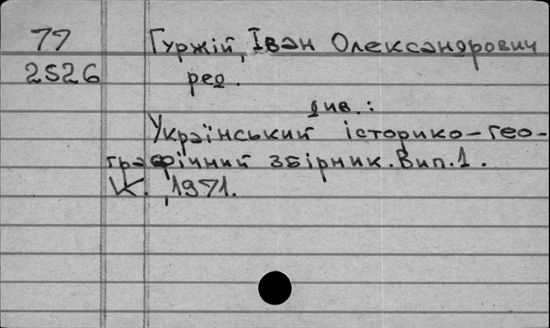 77 Гуржій, Іван Олександрович
2526 ред.
див.:
Український історико-гео-
графічний збірник. Вип.1.
К. ,1971.